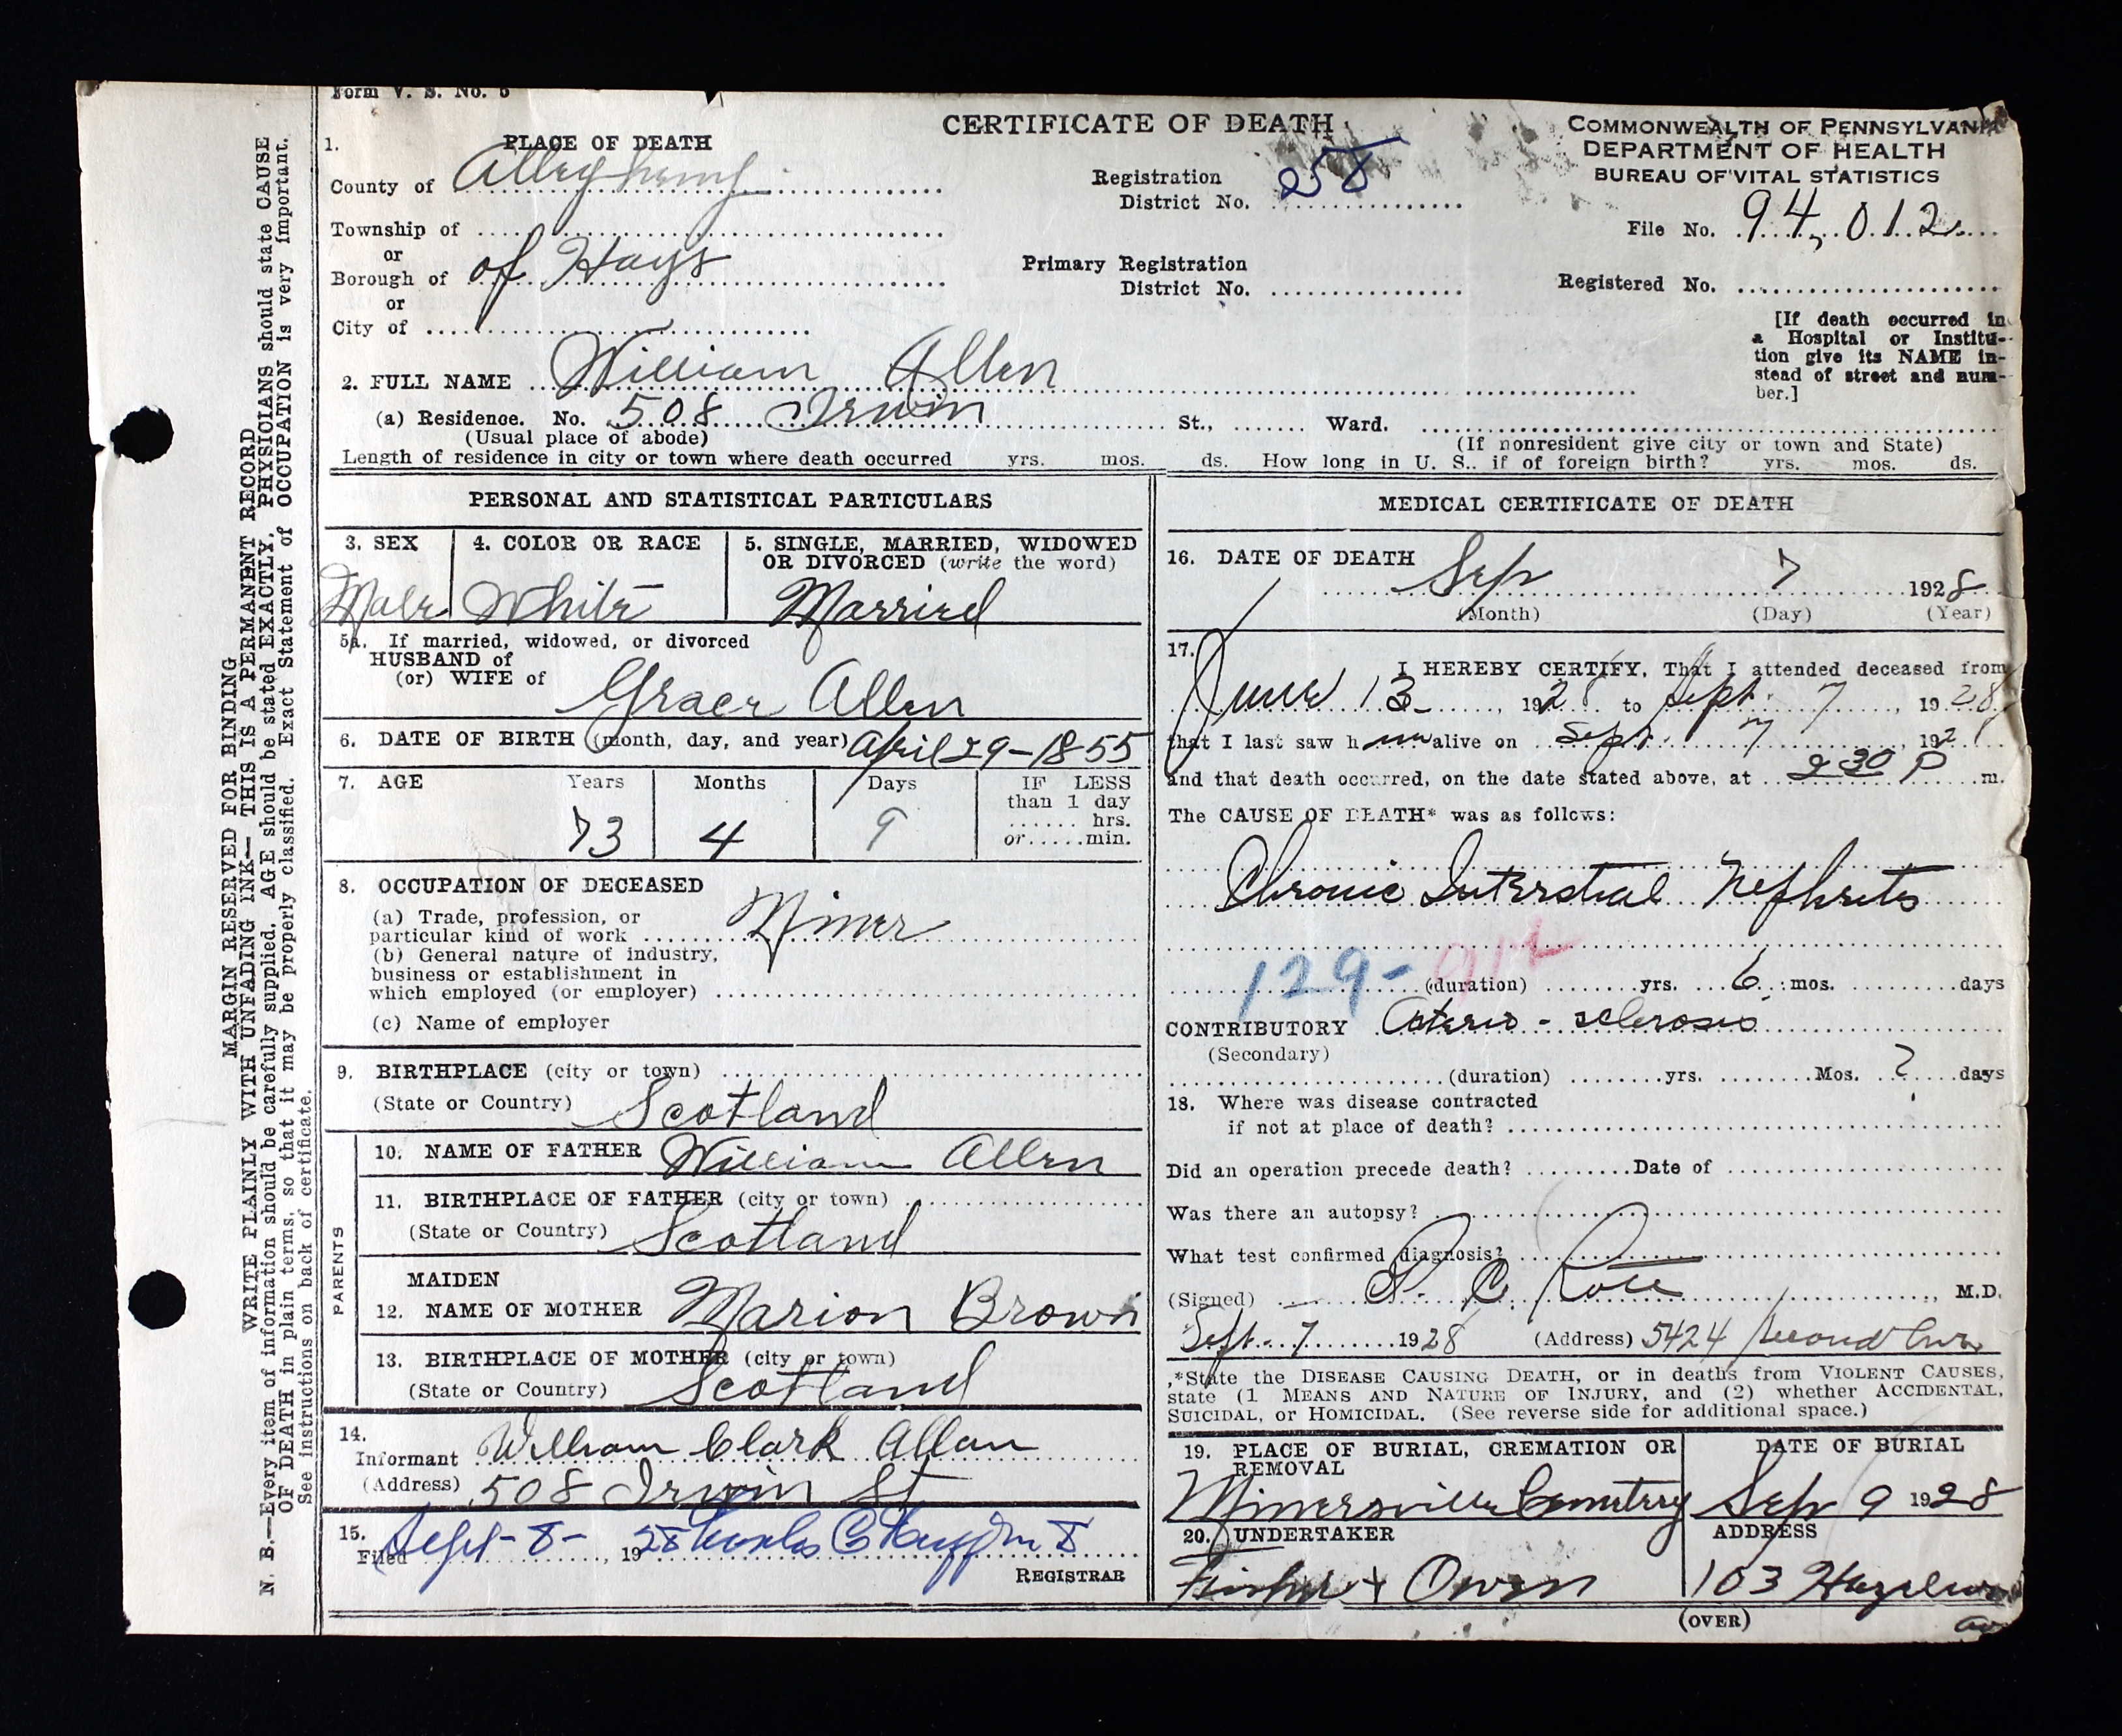 Form V. S. No. 5
1. PLACE OF DEATH
County of Allegheny
Township of
or
Borough of of Hays
or
City of
CERTIFICATE OF DEATH
Registration
District No. 258
Primary Registration
District No.
COMMONWEALTH OF PENNSYLVANIA
DEPARTMENT OF HEALTH
BUREAU OF VITAL STATISTICS
File No. 94,012
Registered No.
[If death occurred in
a Hospital or Institu-
tion give its NAME in-
stead of street and num-
ber.]
2. FULL NAME William Allen
(a) Residence. No. 508 Irwin St., Ward.
(Usual place of abode)
(If nonresident give city or town and State)
Length of residence in city or town where death occurred yrs. mos. ds. How long in U. S., if of foreign birth? yrs. mos. ds.
PERSONAL AND STATISTICAL PARTICULARS
3. SEX
Male
4. COLOR OR RACE
White
5. SINGLE, MARRIED, WIDOWED
OR DIVORCED (write the word)
Married
5a. If married, widowed, or divorced
HUSBAND of
(or) WIFE of
Grace Allen
6. DATE OF BIRTH (month, day, and year) April 29-1855
7. AGE Years Months Days IF LESS
than 1 day
hrs.
or min.
73 4 9
8. OCCUPATION OF DECEASED
(a) Trade, profession, or
particular kind of work Miner
(b) General nature of industry,
business or establishment in
which employed (or employer)
(c) Name of employer
9. BIRTHPLACE (city or town)
(State or Country) Scotland
PARENTS
10. NAME OF FATHER William Allen
11. BIRTHPLACE OF FATHER (city or town)
(State or Country) Scotland
MAIDEN
12. NAME OF MOTHER Marion Brown
13. BIRTHPLACE OF MOTHER (city or town)
(State or Country) Scotland
14.
Informant William Clark Allan
(Address) 508 Irwin St
15.
Filed Sept-8-, 1928
REGISTRAR
MEDICAL CERTIFICATE OF DEATH
16. DATE OF DEATH
Sep 7 1928
(Month) (Day) (Year)
17.
I HEREBY CERTIFY, That I attended deceased from
June 13, 1928 to Sept. 7, 1928
that I last saw him alive on Sept. 7, 192
and that death occurred, on the date stated above, at 2 30 P m.
The CAUSE OF DEATH* was as follows:
Chronic Interstial Nephrites
129-
(duration) yrs. 6 mos. days
CONTRIBUTORY Arterio-sclerosis
(Secondary)
(duration) yrs. Mos. ? days
18. Where was disease contracted
if not at place of death?
Did an operation precede death? Date of
Was there an autopsy?
What test confirmed diagnosis?
(Signed) C. M.D.
Sept. 7 1928 (Address) 5424 Second Ave
*State the DISEASE CAUSING DEATH, or in deaths from VIOLENT CAUSES,
state (1 MEANS AND NATURE OF INJURY, and (2) whether ACCIDENTAL,
SUICIDAL, or HOMICIDAL. (See reverse side for additional space.)
19. PLACE OF BURIAL, CREMATION OR
REMOVAL
Minersville Cemetery
DATE OF BURIAL
Sep 9 1928
20. UNDERTAKER
& Owen
ADDRESS
103 Hazelwood
av
(OVER)
MARGIN RESERVED FOR BINDING
WRITE PLAINLY WITH UNFADING INK— THIS IS A PERMANENT RECORD
N. B.—Every item of information should be carefully supplied. AGE should be stated EXACTLY. PHYSICIANS should state CAUSE
OF DEATH in plain terms, so that it may be properly classified. Exact Statement of OCCUPATION is very important.
See instructions on back of certificate.